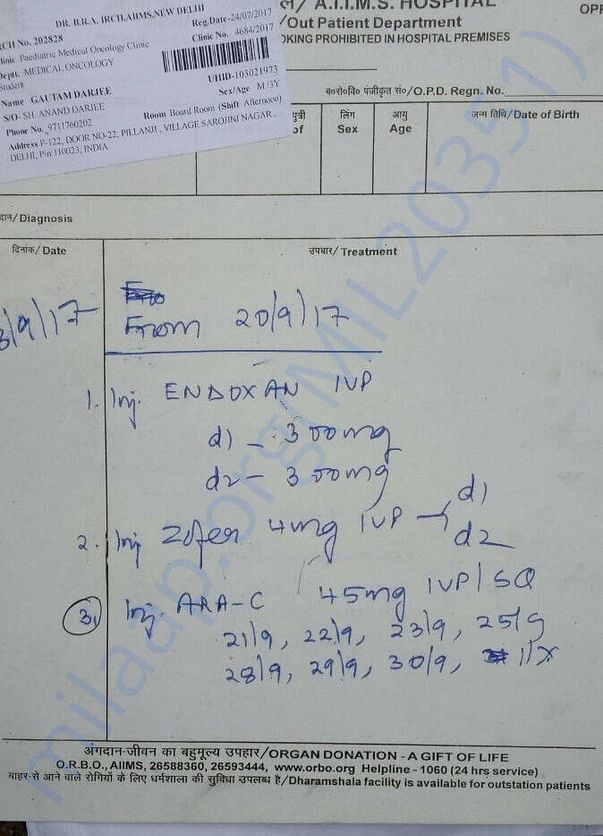 DR. B.R.A. IRCH,AIIMS,NEW DELHI
Reg.Date-24/07/2017
RCH No. 202828
Clinic No. 4684/2017
linic Paediatric Medical Oncology Clinic
Deptt. MEDICAL ONCOLOGY
UHID-103021973
Name GAUTAM DARJEE
Sex/Age M /3Y
S/O- SH. ANAND DARJEE
Room Board Room (Shift Afternoon)
Phone No. 9711760202
Address P-122, DOOR NO-22, PILLANJI , VILLAGE SAROJINI NAGAR ,
DELHI, Pin:110023, INDIA
ल/ A.I.I.M.S. HOSPITAL
OPR
/Out Patient Department
OKING PROHIBITED IN HOSPITAL PREMISES
ब०रो०वि० पंजीकृत सं०/O.P.D. Regn. No.
पुत्री
of
लिंग
Sex
आयु
Age
जन्म तिथि/Date of Birth
दान/Diagnosis
दिनांक/Date
उपचार/Treatment
3/9/17
From 20/9/17
1. Inj. ENDOXAN IVP
d1 - 300mg
d2 - 300mg
2. Inj Zofer 4mg IVP d1
d2
3. Inj. ARA-C 45mg IVP/SQ
21/9, 22/9, 23/9, 25/9
28/9, 29/9, 30/9, 1/X
अंगदान-जीवन का बहुमूल्य उपहार/ORGAN DONATION - A GIFT OF LIFE
O.R.B.O., AIIMS, 26588360, 26593444, www.orbo.org Helpline - 1060 (24 hrs service)
बाहर से आने वाले रोगियों के लिए धर्मशाला की सुविधा उपलब्ध है/Dharamshala facility is available for outstation patients
milaap.org(MIL20351)